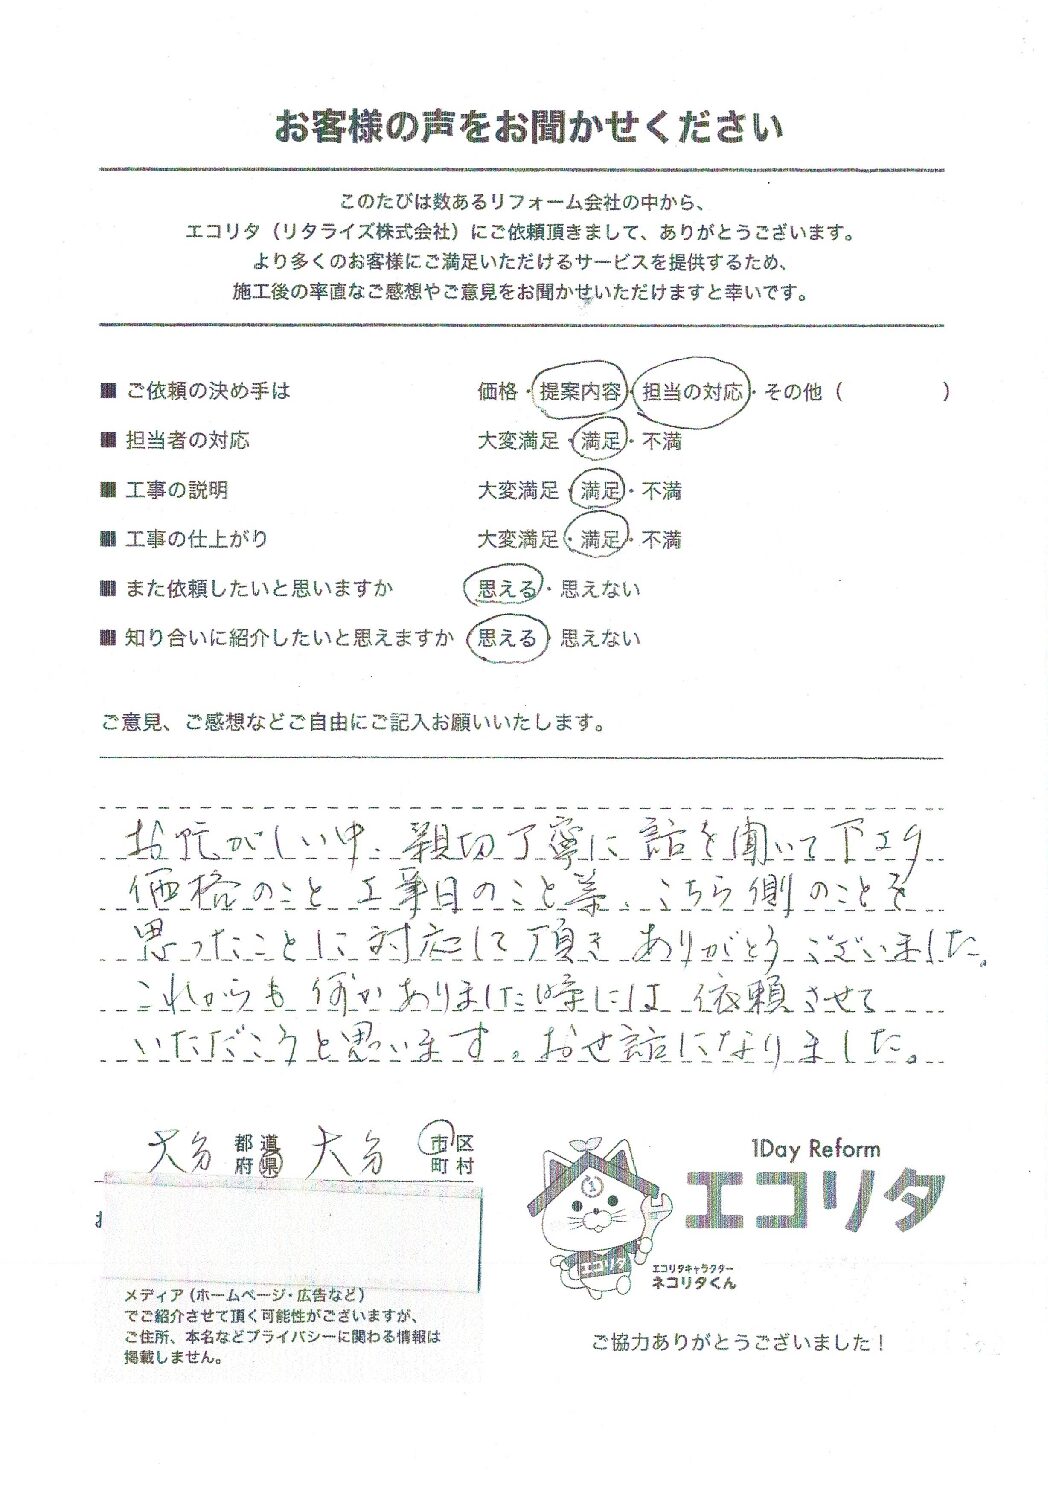 お客様の声をお聞かせください
このたびは数あるリフォーム会社の中から、
エコリタ（リタライズ株式会社）にご依頼頂きまして、ありがとうございます。
より多くのお客様にご満足いただけるサービスを提供するため、
施工後の率直なご感想やご意見をお聞かせいただけますと幸いです。
■ ご依頼の決め手は 価格・提案内容・担当の対応・その他（ ）
■ 担当者の対応 大変満足・満足・不満
■ 工事の説明 大変満足・満足・不満
■ 工事の仕上がり 大変満足・満足・不満
■ また依頼したいと思いますか 思える・思えない
■ 知り合いに紹介したいと思えますか 思える・思えない
ご意見、ご感想などご自由にご記入お願いいたします。
お忙がしい中、親切丁寧に話を聞いて下さり
価格のこと、工事日のこと等、こちら側のことを
思ったことに対応して頂きありがとうございました。
これからも何かありました時には依頼させて
いただこうと思います。お世話になりました。
大分 都道府県 大分 市区町村
1Day Reform
エコリタ
①
エコリタ
エコリタキャラクター
ネコリタくん
メディア（ホームページ・広告など）
でご紹介させて頂く可能性がございますが、
ご住所、本名などプライバシーに関わる情報は
掲載しません。
ご協力ありがとうございました！